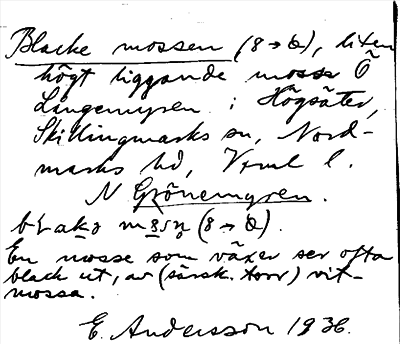 Blacke mossen (8 → ɵ), liten
högt liggande mosse Ö
Långemyren i Högsäter,
Skillingmarks sn, Nord-
marks hd, Vrml l.
N Grönemyren.
En mosse som växer ser ofta
black ut, av (särsk. torr) vit-
mossa.
E. Andersson 1936.